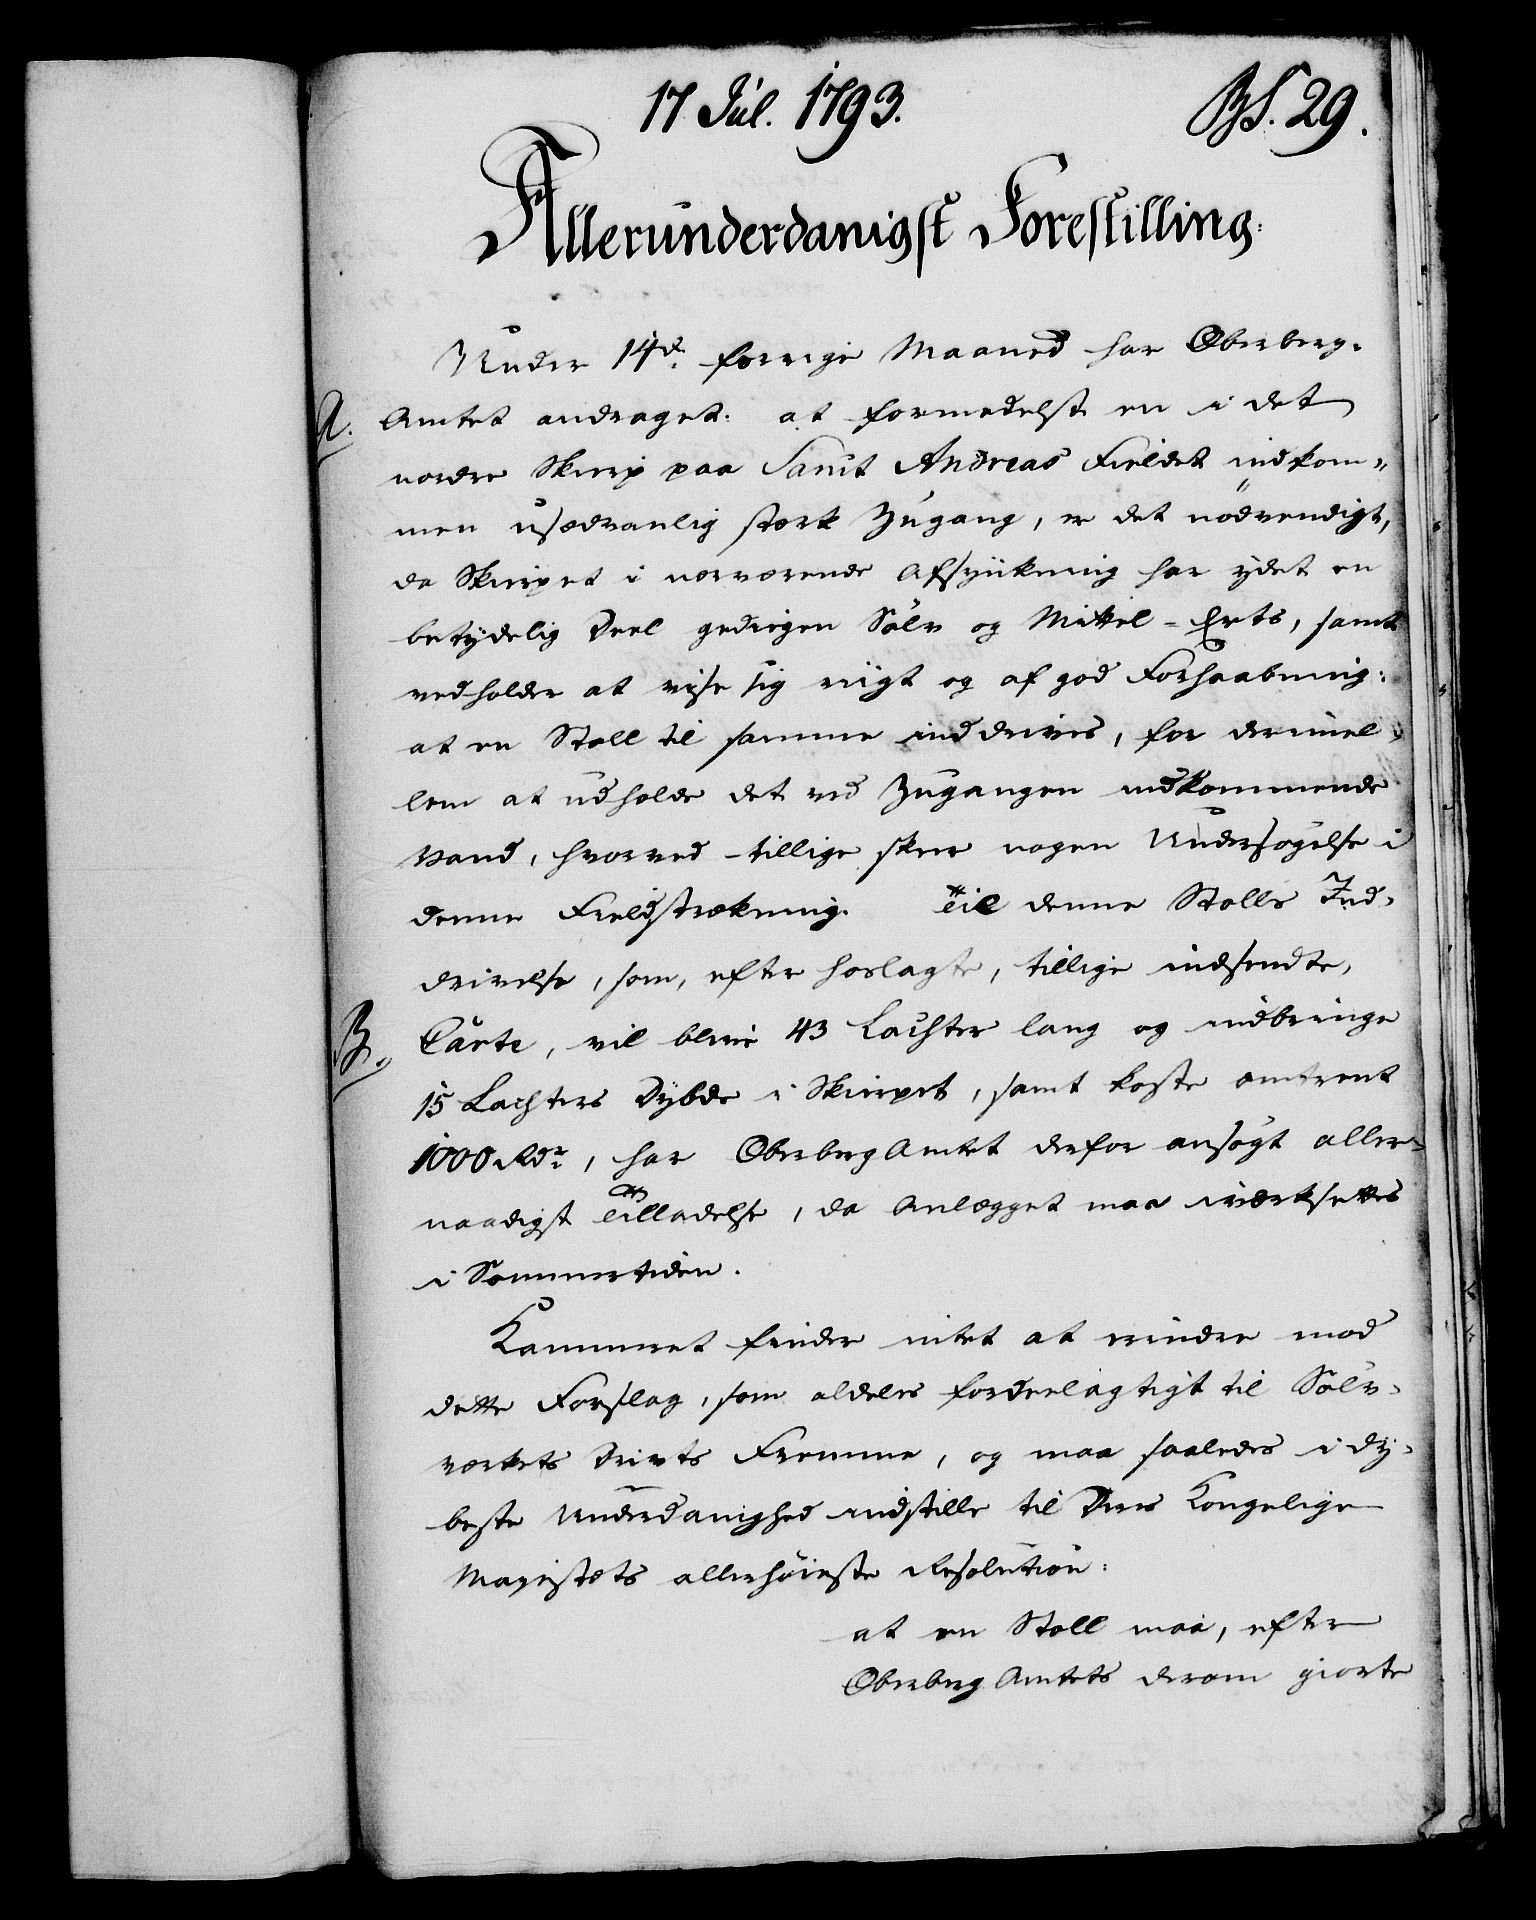 17 Jul. 1793.
BS. 29.
Allerunderdanigst Forestilling.
Under 14d. forrige Maaned har Oberberg-
A.
Amtet andraget: at formedelst en i det
nordre Skierp paa Sanct Andreas Fieldet indkom-
men usædvanlig stærk Zugang, er det nödvendigt,
da Skierpet i nærværende Afsynkning har ydet en
betydelig Deel gedigen Sölv og Mittel-Erts, samt
vedholder at vise sig riigt og af god Forhaabning:
at en Stoll til samme inddrives, for derimel-
lem at udholde det ved Zugangen indkommende
Vand, hvorved tillige skeer nogen Undersögelse i
denne Fieldstrækning. Til denne Stolls Ind-
drivelse, som, efter hoslagte, tillige indsendte,
B.
Carte, vil blive 43 Lachter lang og indbringe
15 Lachters Dybde i Skierpet, samt koste omtrent
1000 Rdr., har OberbergAmtet derfor ansögt aller-
naadigst Tilladelse, da Anlægget maa iværksettes
i Sommertiden.
Kammeret finder intet at erindre mod
dette Forslag, som aldeles fordeelagtigt til Sölv-
værkets Drivts Fremme, og maa saaledes i dy-
beste Underdanighed indstille til Deres Kongelige
Majestæts allerhöieste Resolution:
at en Stoll maa, efter
Oberberg Amtets derom giorte